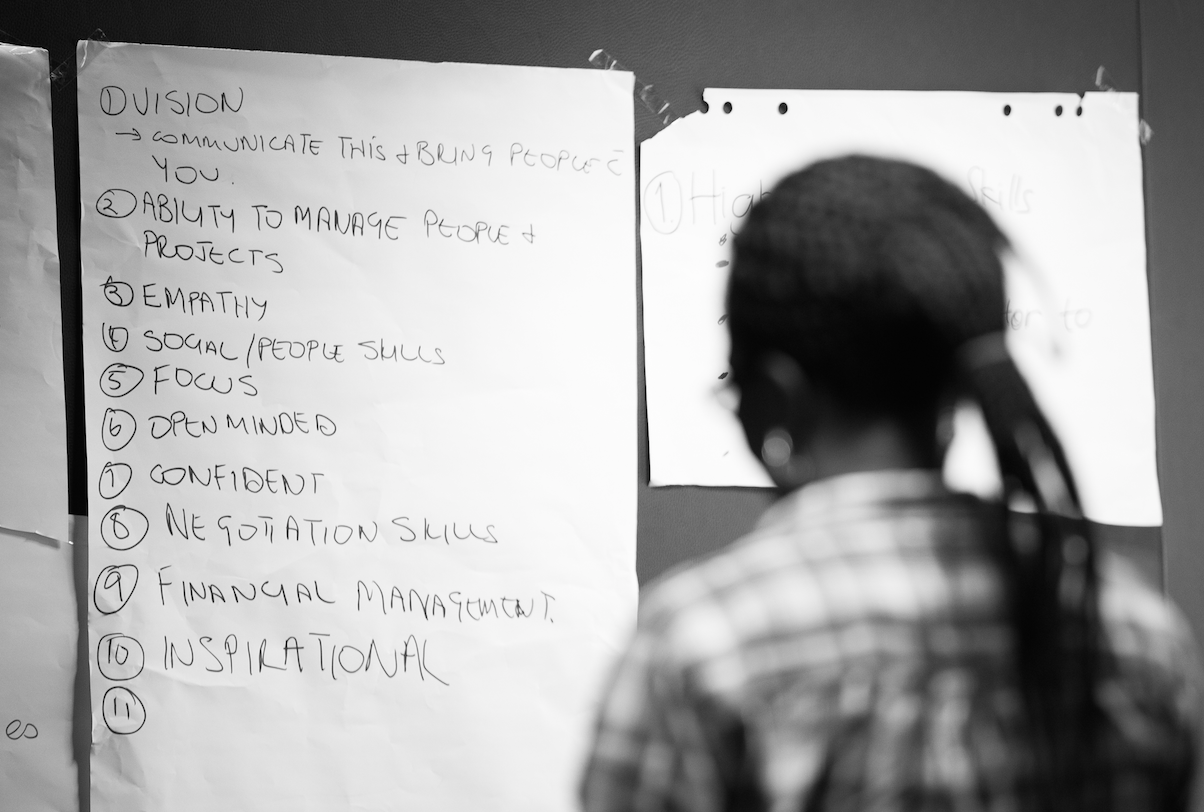 ① VISION
→ COMMUNICATE THIS + BRING PEOPLE C̄
YOU.
② ABILITY TO MANAGE PEOPLE +
PROJECTS
③ EMPATHY
④ SOCIAL/PEOPLE SKILLS
⑤ FOCUS
⑥ OPEN MINDED
⑦ CONFIDENT
⑧ NEGOTIATION SKILLS
⑨ FINANCIAL MANAGEMENT.
⑩ INSPIRATIONAL
⑪
es
① Skills
to